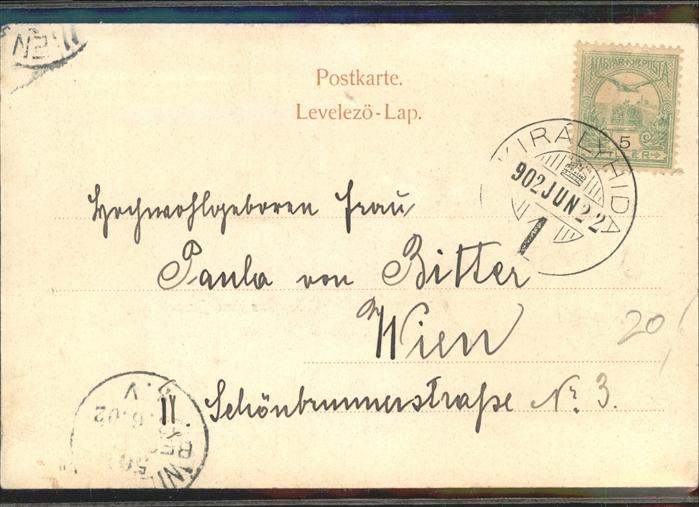 Postkarte.
Levelező-Lap.
MAGYAR·KIR·POSTA
5
KIRÁLYHIDA
902 JUN 22
1
Hochwohlgeboren Frau
Paula von Bitter
Wien
II Schönbrunnerstraße No. 3.
20